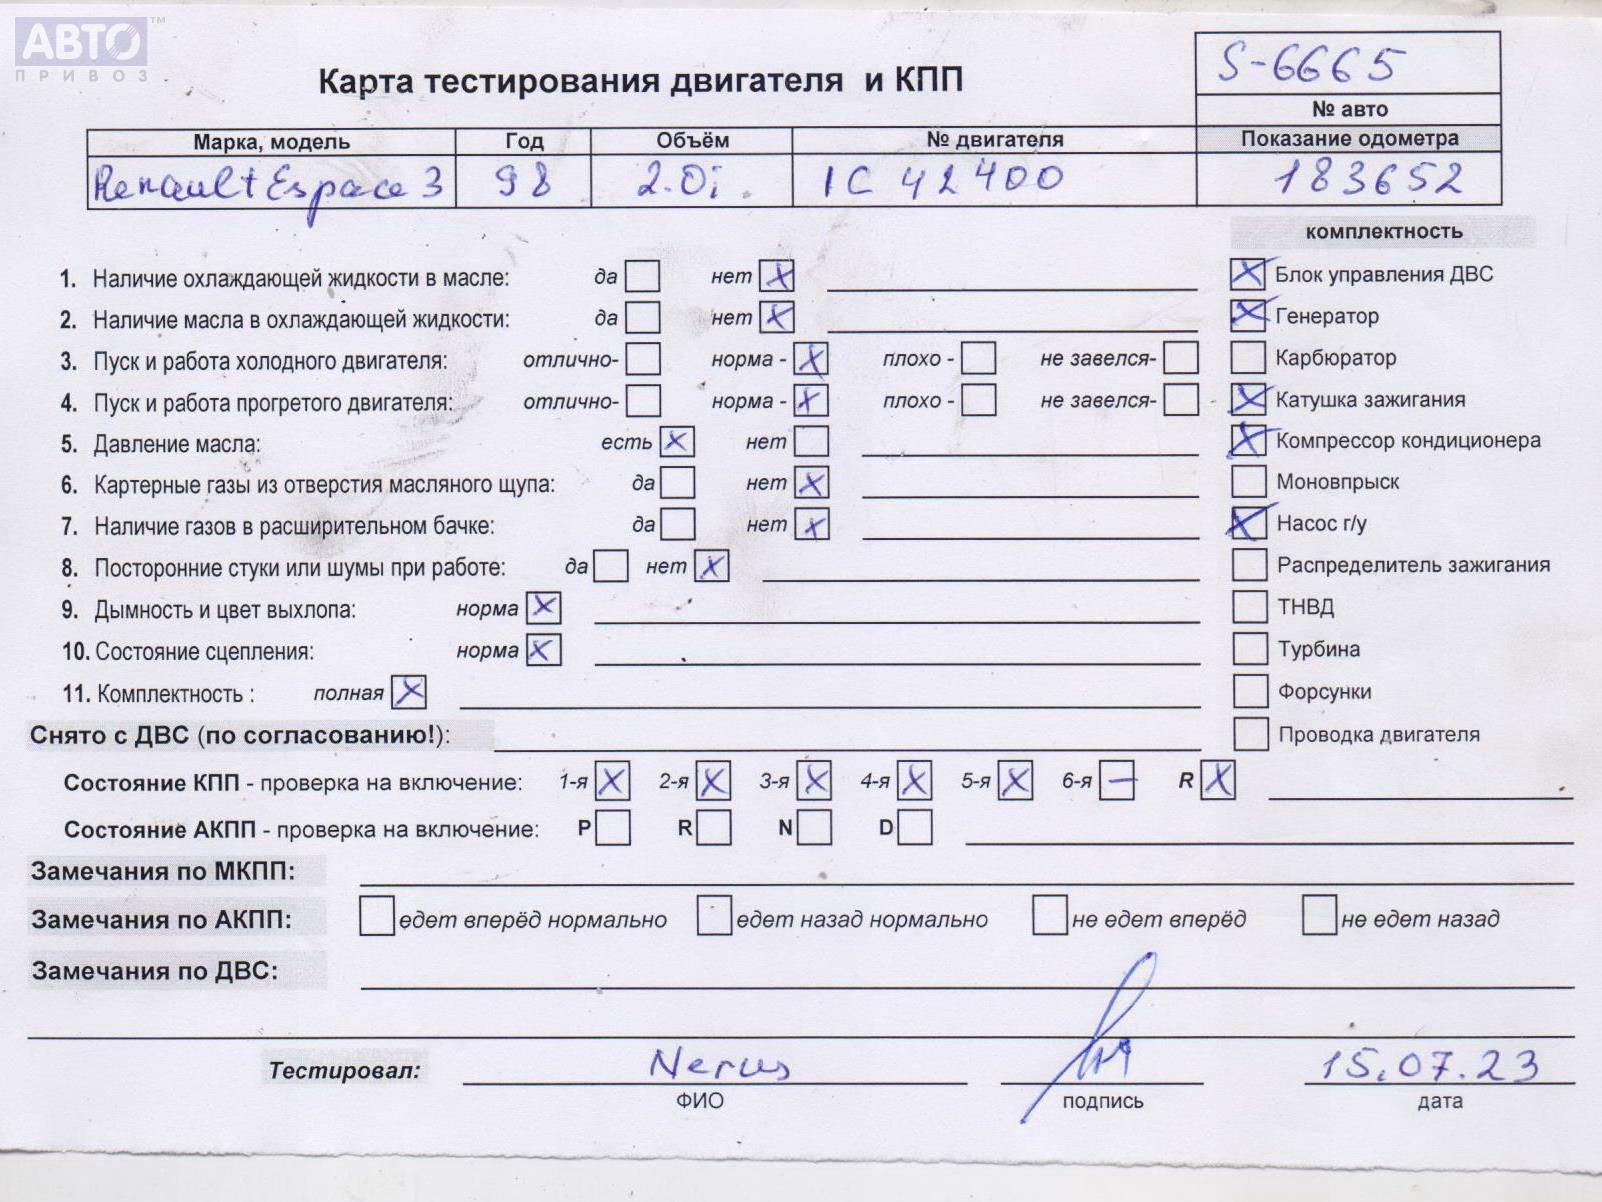 АВТО™
ПРИВОЗ
Карта тестирования двигателя и КПП
S-6665
№ авто
Марка, модель Год Объём № двигателя Показание одометра
Renault Espace 3 98 2.0i 1C 42400 183652
комплектность
1. Наличие охлаждающей жидкости в масле: да нет X
Блок управления ДВС X
2. Наличие масла в охлаждающей жидкости: да нет X
Генератор X
3. Пуск и работа холодного двигателя: отлично- норма - X плохо - не завелся-
Карбюратор
4. Пуск и работа прогретого двигателя: отлично- норма - X плохо - не завелся-
Катушка зажигания X
5. Давление масла: есть X нет
Компрессор кондиционера X
6. Картерные газы из отверстия масляного щупа: да нет X
Моновпрыск
7. Наличие газов в расширительном бачке: да нет X
Насос г/у X
8. Посторонние стуки или шумы при работе: да нет X
Распределитель зажигания
9. Дымность и цвет выхлопа: норма X
ТНВД
10. Состояние сцепления: норма X
Турбина
11. Комплектность : полная X
Форсунки
Снято с ДВС (по согласованию!):
Проводка двигателя
Состояние КПП - проверка на включение: 1-я X 2-я X 3-я X 4-я X 5-я X 6-я — R X
Состояние АКПП - проверка на включение: P R N D
Замечания по МКПП:
Замечания по АКПП: едет вперёд нормально едет назад нормально не едет вперёд не едет назад
Замечания по ДВС:
Тестировал: 15.07.23
ФИО подпись дата